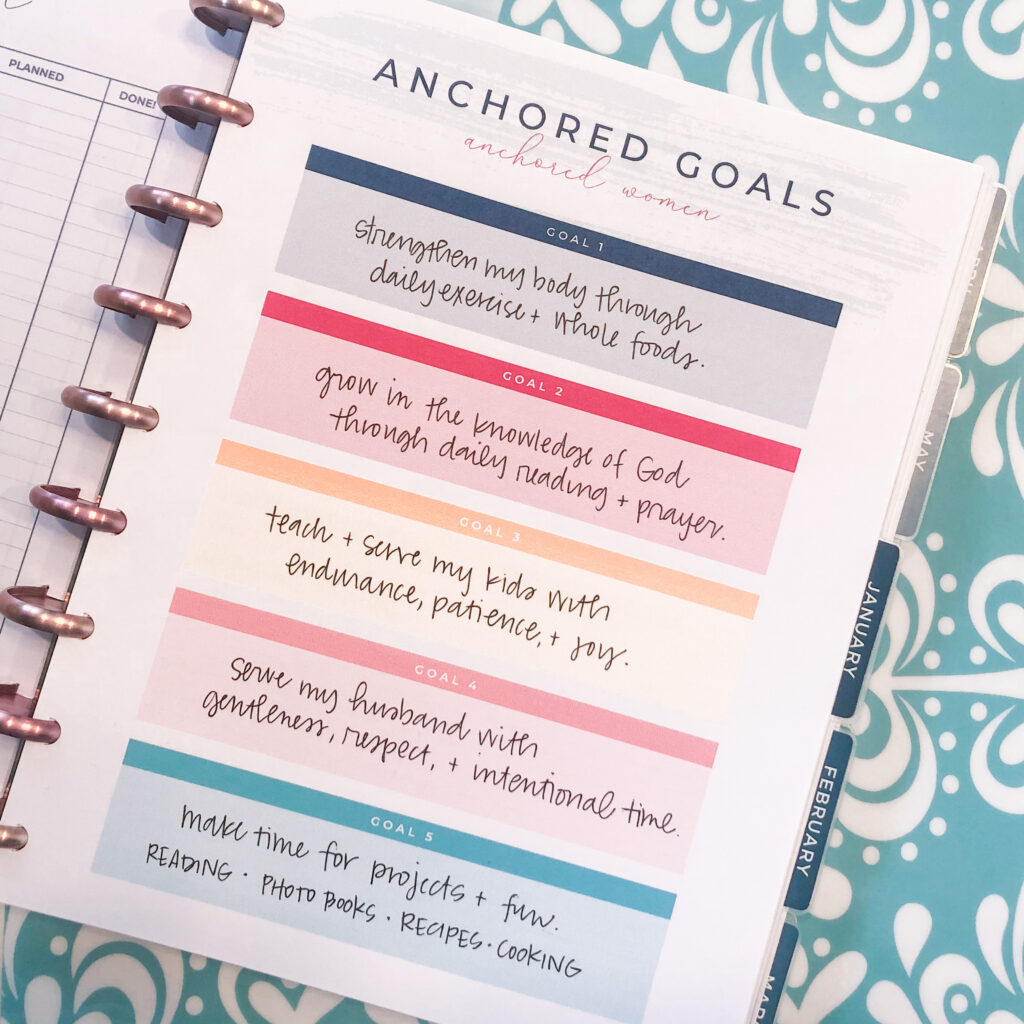 PLANNED
DONE!
ANCHORED GOALS
anchored women
GOAL 1
strengthen my body through
daily exercise + whole foods.
GOAL 2
grow in the knowledge of God
through daily reading + prayer.
GOAL 3
teach + serve my kids with
endurance, patience, + joy.
GOAL 4
serve my husband with
gentleness, respect, + intentional time.
GOAL 5
make time for projects + fun.
READING · PHOTO BOOKS · RECIPES · COOKING
MAY
JANUARY
FEBRUARY